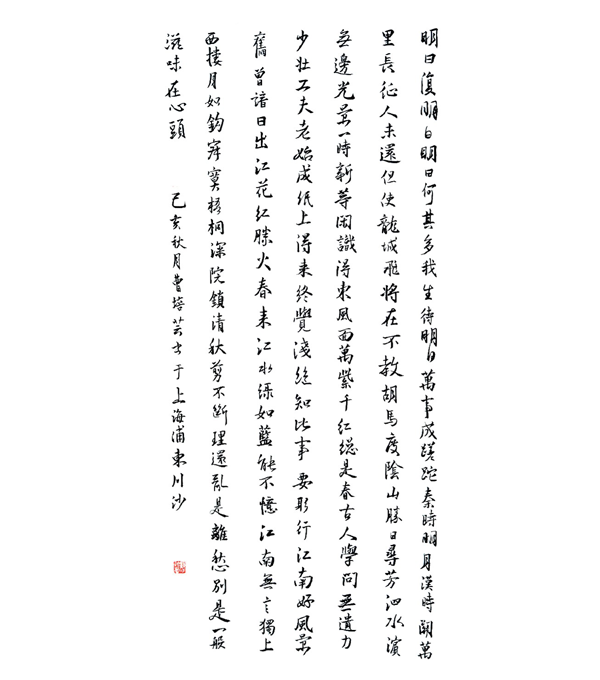 明日復明日明日何其多我生待明日萬事成蹉跎秦時明月漢時關萬
里長征人未還但使龍城飛將在不教胡馬度陰山勝日尋芳泗水濱
無邊光景一時新等閑識得東風面萬紫千紅總是春古人學問無遺力
少壯工夫老始成紙上得來終覺淺絕知此事要躬行江南好風景
舊曾諳日出江花紅勝火春來江水綠如藍能不憶江南無言獨上
西樓月如鈎寂寞梧桐深院鎖清秋剪不斷理還亂是離愁別是一般
滋味在心頭
己亥秋月曹培芸書于上海浦東川沙